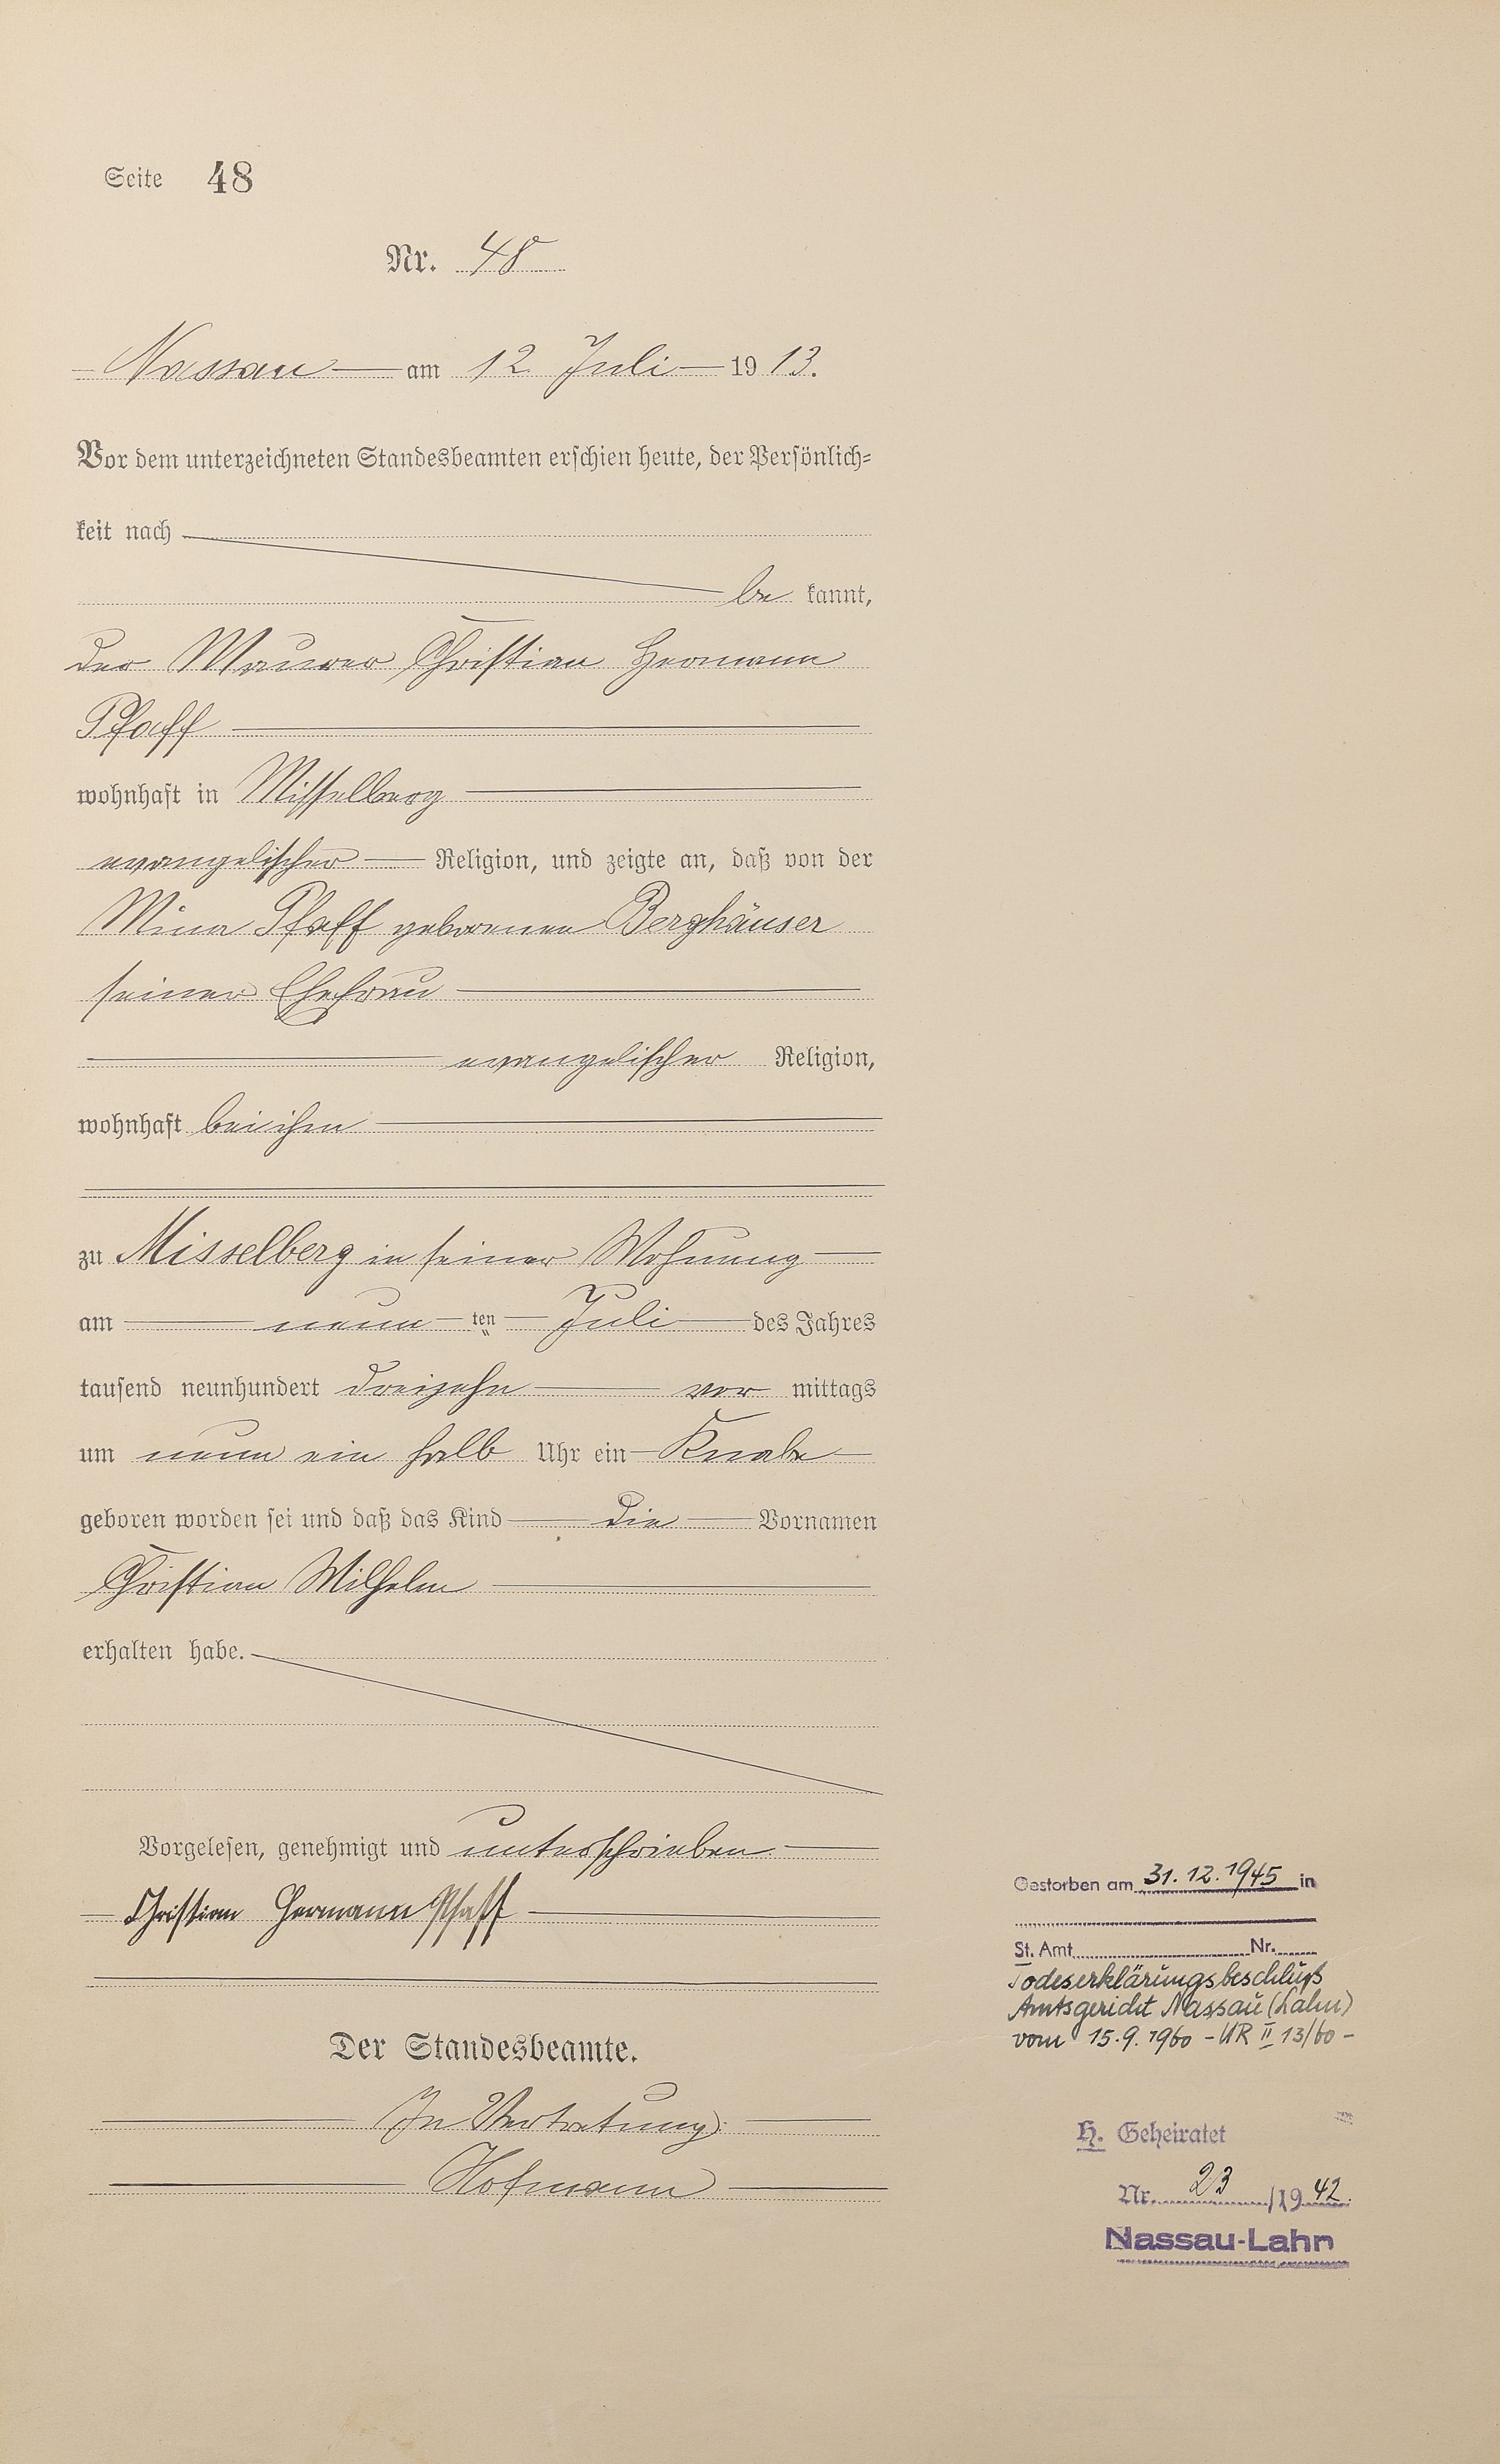 Seite 48
Nr. 48
Nassau am 12 Juli 1913.
Vor dem unterzeichneten Standesbeamten erschien heute, der Persönlich-
keit nach
be kannt,
der Maurer Christian Hermann
Pfaff
wohnhaft in Misselberg
evangelischer Religion, und zeigte an, daß von der
Mina Pfaff geborenen Berghäuser
seiner Ehefrau
evangelischer Religion,
wohnhaft bei ihm
zu Misselberg in seiner Wohnung
am neun ten Juli des Jahres
tausend neunhundert dreizehn vor mittags
um neun ein halb Uhr ein Knabe
geboren worden sei und daß das Kind die Vornamen
Christian Wilhelm
erhalten habe.
Vorgelesen, genehmigt und unterschrieben
Christian Hermann Pfaff
Der Standesbeamte.
In Vertretung:
Hofmann
Gestorben am 31.12.1945 in
St. Amt Nr.
Todeserklärungsbeschluß
Amtsgericht Nassau (Lahn)
vom 15.9.1960 - UR II 13/60 -
H. Geheiratet
Nr. 23 /1942.
Nassau-Lahn